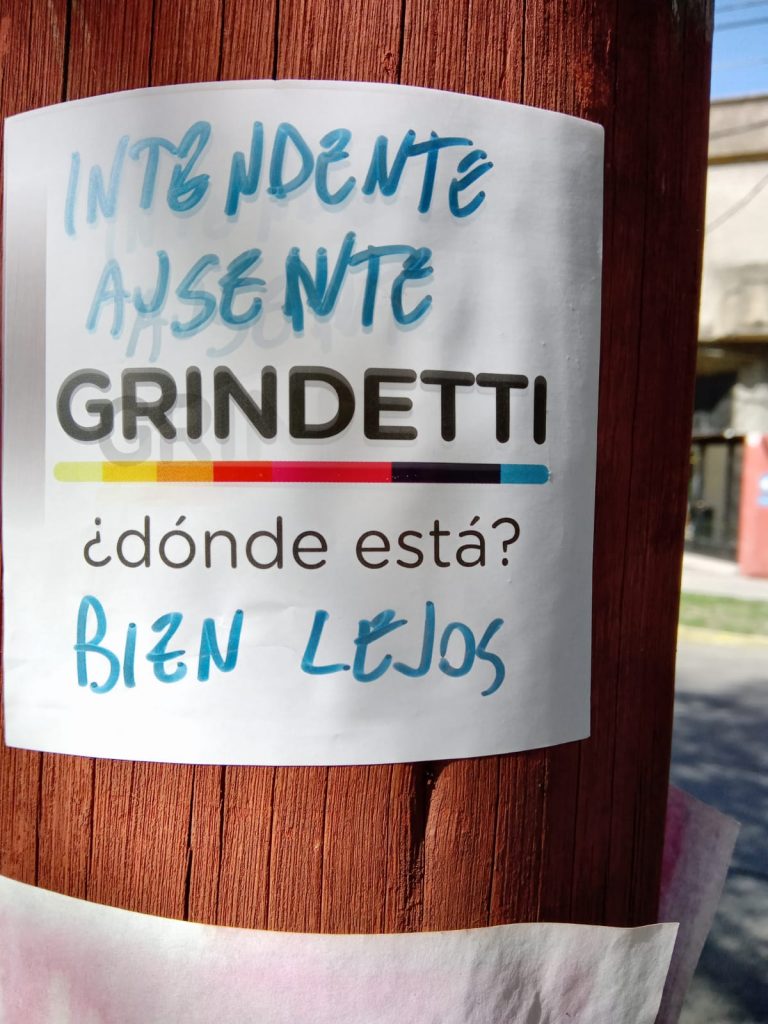 INTENDENTE
AUSENTE
GRINDETTI
¿dónde está?
BIEN LEJOS